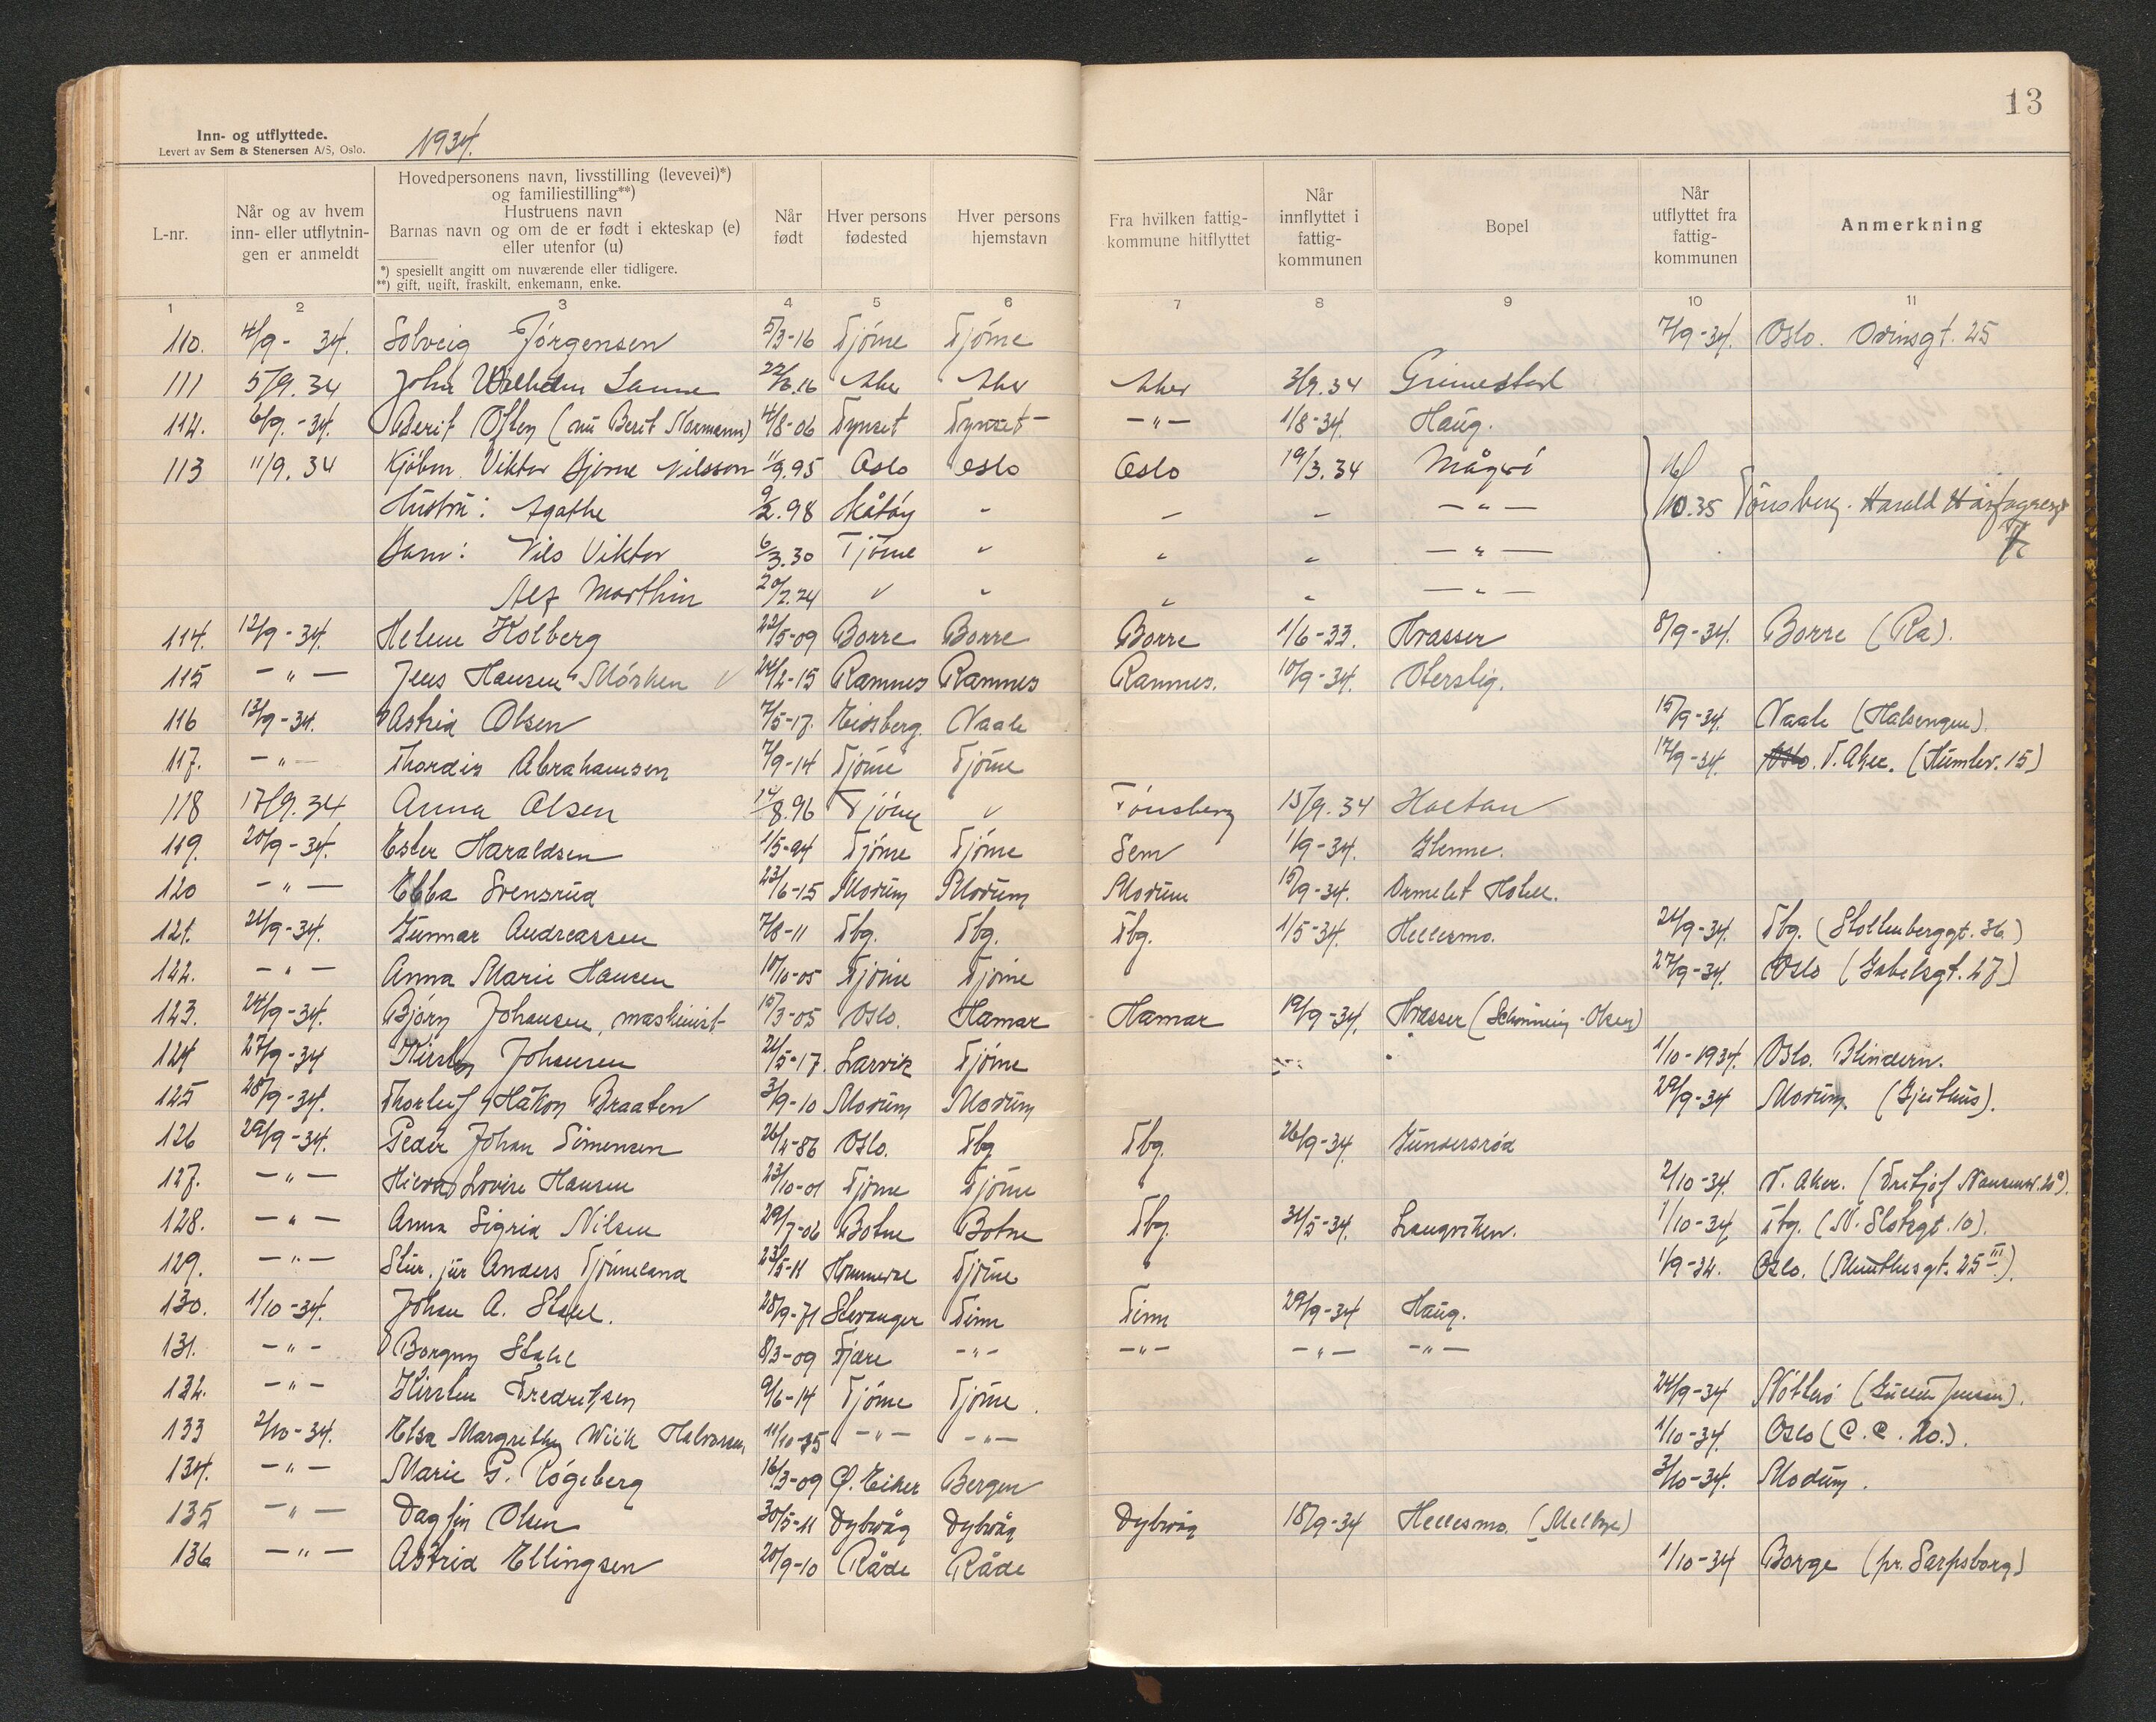 13
Inn- og utflyttede.
Levert av Sem & Stenersen A/S, Oslo.
1934.
L-nr.
Når og av hvem inn- eller utflytnin-gen er anmeldt
Hovedpersonens navn, livsstilling (levevei)*)
og familiestilling**)
Hustruens navn
Barnas navn og om de er født i ekteskap (e)
eller utenfor (u)
*) spesiellt angitt om nuværende eller tidligere.
**) gift, ugift, fraskilt, enkemann, enke.
Når født
Hver persons fødested
Hver persons hjemstavn
Fra hvilken fattig-kommune hitflyttet
Når innflyttet i fattig-kommunen
Bopel
Når utflyttet fra fattig-kommunen
Anmerkning
1 2 3 4 5 6 7 8 9 10 11
110. 4/9 - 34. Solveig Jörgensen 5/3-16 Tjöme Tjöme 7/9-34. Oslo. Odinsgt. 25
111 5/9. 34 John Wilhelm 16 Aker Aker Aker 3/9.34 Grimestad
112. 6/9. -34. Berit Often (nu Berit Normann) 4/8-06 Tynset Tynset - - " - 1/8-34. Haug.
113 11/9. 34 Kjöbm. Viktor Bjerne Nilsson 11/9.95 Oslo Oslo Oslo 19/3.34 Mågerö
Hustru: Agathe 9/2.98 Skåtöy " - - - " - 10.35 Tönsberg. Harald Hårfagresgt
Barn: Nils Viktor 6/3.30 Tjöme " " " - " -
Alf Marthin 20/2.24 " " " " - " -
114. 12/9-34. Helene Holberg 22/5-09 Borre Borre Borre 1/6-33. Hvasser 8/9-34. Borre (Ra).
115 - " - Jens Hansen Mörken 24/2-15 Ramnes Ramnes Ramnes. 10/9-34. Oterslig.
116 13/9-34. Astrid Olsen 7/5-17. Eidsberg. Vaale 15/9-34. Vaale (Halsengen).
117. - " - Thordis Abrahamsen 7/9-14 Tjöme Tjöme 17/9-34. Oslo. V. Aker. (Humlev. 15)
118 17/9. 34 Anna Olsen 14/8.96 Tjöme " Tönsberg 15/9.34 Holtan
119. 20/9-34. Ester Haraldsen 1/5-94 Tjöme Tjöme Sem 1/9-34. Glenne.
120 - " - Ebba Svensrud 23/6-15 Modum Modum Modum 15/9-34. Ormelet Hotell.
121. 21/9-34. Gunnar Andreassen 7/8-11 Tbg. Tbg. Tbg. 1/5-34. Hellesmo. 21/9-34. Tbg. (Stoltenberggt. 36)
122. - " - Anna Marie Hansen 10/10-05 Tjöme Tjöme 27/9-34. Oslo (Gabelsgt. 27)
123. 24/9-34. Björn Johansen, maskinist- 15/3-05 Oslo. Hamar Hamar 19/9-34. Hvasser (Schönning-Olsen)
124 27/9-34 Kirsten Johansen 21/5-17. Larvik Tjöme 1/10-1934. Oslo. Blindern.
125 28/9-34. Thorleif Håkon Braaten 3/9-10 Modum Modum 29/9-34 Modum. (Gjeithus).
126 29/9-34. Peder Johan Simensen 26/2-86 Oslo. Tbg Tbg. 26/9-34. Gundersröd
127. - " - Lovise Hansen 23/10-01 Tjöme Tjöme 2/10-34. V. Aker. (Fritjof Nansensv. 20a).
128. - " - Anna Sigrid Nilsen 29/7-06 Botne Botne Tbg. 31/5-34. Langviken. 1/10-34. Tbg. (N. Slotsgt. 10).
129. - " - Stud. jur Anders Tjömeland 23/5-11 Hommedal Tjöme 1/9-34. Oslo. (Munthesgt. 25 III).
130. 1/10-34. Johan A. Stahl. 28/9-71 Stavanger Tinn Tinn 29/9-34 Haug.
131. - " - Borgny Stahl 8/3-09 Fjære - " - - " - - " - - " -
132. - " - Kirsten Fredriksen 9/6-14 Tjöme Tjöme. 24/9-34 Nötterö ( Jensen).
133 2/10-34. Elsa Margrethe Wiik Halvorsen 11/10-35 - " - - " - 1/10-34. Oslo (C. C. 20.).
134. - " - Marie P. Rögeberg 16/3-09 Ø. Eiker Bergen 3/10-34. Modum.
135 - " - Dagfin Olsen 30/5-11 Dybvåg Dybvåg Dybvåg 18/9-34 Hellesmo. (Melbye)
136 - " - Astrid Ellingsen 20/9-10 Råde Råde 1/10-34 Borge (pr. Sarpsborg)